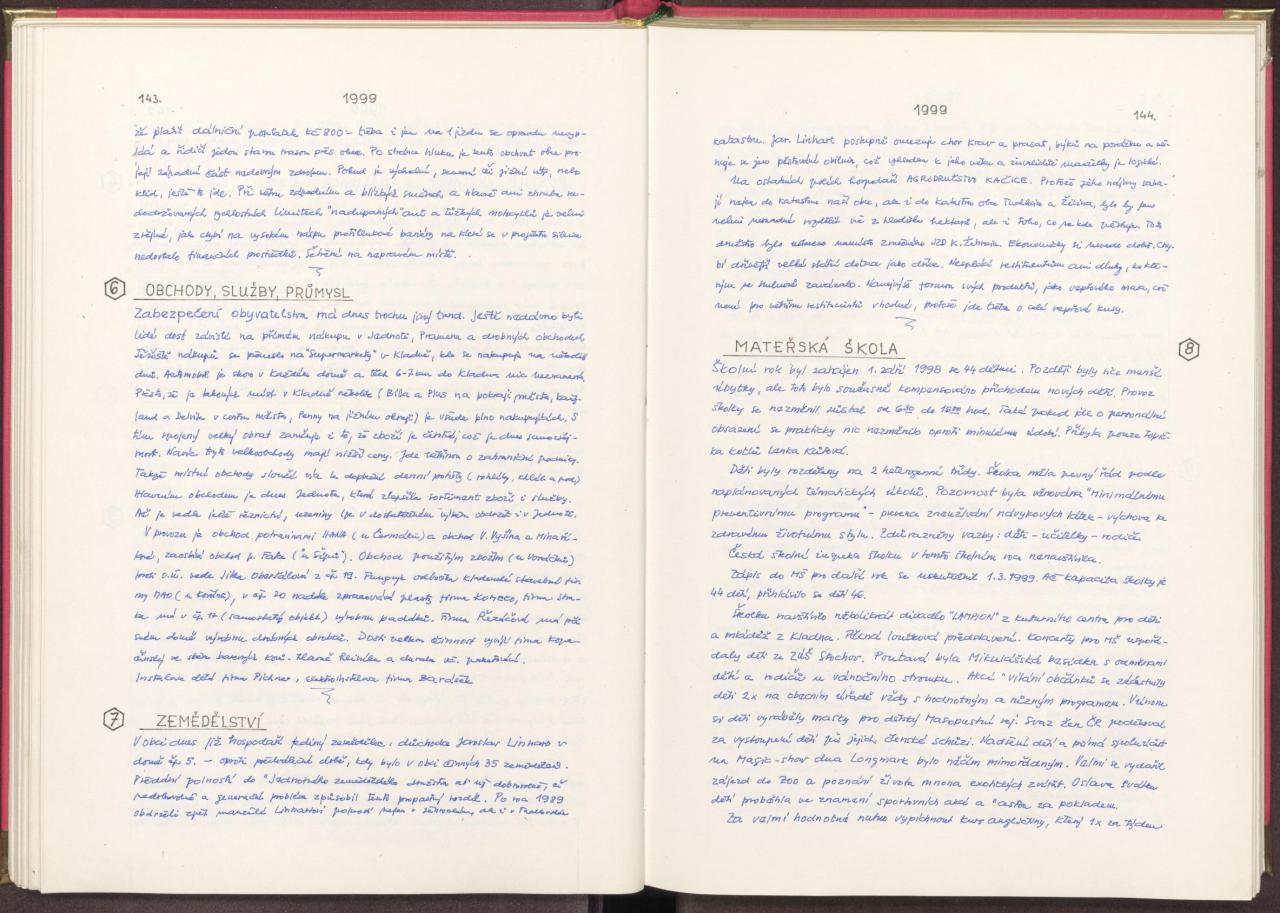 143.
1999
že platit dálniční poplatek Kč 800.- třeba i jen na 1 jízdu se opravdu nevyp-
lácí a řidiči jedou starou trasou přes obec. Po stránce hluku je tento obchvat obce pro
její západní část nedobrým zdrojem. Pokud je východní, severní či jižní vítr, nebo
klid, ještě to jde. Při větru západním a blízkých směrech, a hlavně ani zhruba ne-
dodržovaných rychlostních limitech "nadupaných" aut a těžkých motocyklů je velmi
zřejmé, jak chybí na vysokém náspu protihlukové bariéry na které se v projektu silnice
nedostalo finančních prostředků. Šetření na nepravém místě.
6 OBCHODY, SLUŽBY, PRŮMYSL
Zabezpečení obyvatelstva má dnes trochu jiný trend. Ještě nedávno byli
lidé dost závislí na přímém nákupu v Jednotě, Prameni a drobných obchodech.
Těžiště nákupů se přeneslo na "supermarkety" v Kladně, kde se nakupuje na několik
dnů. Automobil je skoro v každém domě a těch 6-7 km do Kladna nic neznamená.
Přesto, že je takových míst v Kladně několik (Billa a Plus na pokraji města, Kauf-
land a Delvita v centru města, Penny na jižním okraji) je všude plno nakupujících. S
tím spojený velký obrat zaručuje i to, že zboží je čerstvé, což je dnes samozřej-
mostí. Navíc tyto velkoobchody mají nižší ceny. Jde většinou o zahraniční podniky.
Takže místní obchody slouží víc k doplnění denní potřeby (rohlíky, chléb a pod.)
Hlavním obchodem je dnes Jednota, která zlepšila sortiment zboží i služby.
Ač je vedle ještě řeznictví, uzeniny lze v dostatečném výběru obdržet i v Jednotě.
V provozu je obchod potravinami HANA (u Čermáků) a obchod V. Vyšína a Minaří-
kové, zaostává obchod p. Fáka (u Šípů). Obchod použitým zbožím (u Voráčků)
proti o.ú. vede Jitka Oberfálová z čp. 19. Funguje odbočka kladenské stavební fir-
my MAO (u Kováně), v čp. 20 nadále zpracovává plasty firma KOMECO, firma Stra-
ka má v čp. 17 (samostatný objekt) výrobnu padáků. Firma Řezáčová má při
svém domě výrobnu drobných obrubů. Dosti velkou činnost vyvíjí firma Kopa-
čínský ve sběru barevných kovů. Hlavně hliníku a duralu vč. zpracování.
Instalace dělá firma Pichner, elektroinstalace firma Barášek
7 ZEMĚDĚLSTVÍ
V obci dnes již hospodaří jediný zemědělec, důchodce Jaroslav Linhart v
domě čp. 5. - oproti předválečné době, kdy bylo v obci činných 35 zemědělců.
Předání polností do "Jednotného zemědělského družstva ať už dobrovolné, či
nedobrovolné a generační problém způsobil tento propastný rozdíl. Po roce 1989
obdrželi zpět manželé Linhartovi polnosti nejen v Žehrovicích, ale i v Tuchlovicích
1999
144.
katastru. Jar. Linhart postupně omezuje chov krav a prasat, býků na porážku a vě-
nuje se jen pěstování obilnin, což vzhledem k jeho věku a invaliditě manželky je logické.
Na ostatních polích hospodaří AGRODRUŽSTVO KAČICE. Protože jeho nájmy zaha-
jí nejen do katastru naší obce, ale i do katastru obce Tuchlovice a Žilina, bylo by pro
velmi nesnadné rozdělit vše z hlediska hektarů, ale i toho, co se kde pěstuje. Toto
družstvo bylo utvořeno namísto zrušeného JZD K. Žehrovic. Ekonomicky si nevede dobře. Chy-
bí dřívější velká státní dotace jako dříve. Nesplácí restituentům ani dluhy, ke kte-
rým se smluvně zavázalo. Nanejvýš formou svých produktů, jako vepřového masa, což
není pro většinu restituentů vhodné, protože jde třeba o celé vepřové kusy.
8 MATEŘSKÁ ŠKOLA
Školní rok byl zahájen 1. září 1998 se 44 dětmi. Později byly sice menší
úbytky, ale toto bylo současně kompenzováno příchodem nových dětí. Provoz
školky se nezměnil zůstal od 6³⁰ do 16⁰⁰ hod. Také pokud jde o personální
obsazení se prakticky nic nezměnilo oproti minulému období. Přibyla pouze topič-
ka kotlů Lenka Kůtová.
Děti byly rozděleny na 2 heterogenní třídy. Školka měla pevný řád podle
naplánovaných tématických úkolů. Pozornost byla věnována "Minimálnímu
preventivnímu programu" - prevence zneužívání návykových látek - výchova ke
zdravému životnímu stylu. Zdůrazněny vazby: děti - učitelky - rodiče.
Česká školní inspekce školku v tomto školním roce nenavštívila.
Zápis do MŠ pro další rok se uskutečnil 1.3.1999. Ač kapacita školky je
44 dětí, přihlásilo se dětí 46.
Školku navštívilo několikrát divadlo "LAMPION" z kulturního centra pro děti
a mládež z Kladna. Pěkná loutková představení. Koncerty pro MŠ uspořá-
daly děti ze ZUŠ Stochov. Poutavá byla Mikulášská besídka s odměnami
dětí a rodičů u vánočního stromku. Akcí "Vítání občánků se zúčastnily
děti 2x na obecním úřadě vždy s hodnotným a něžným programem. Velmi
si děti vyráběly masky pro dětský Masopustní rej. Svaz žen ČR poděkoval
za vystoupení dětí při jejich členské schůzi. Nadšení dětí a přímá spoluúčast
na Magic-show dua Longmark bylo něčím mimořádným. Velmi se vydařil
zájezd do ZOO a poznání života mnoha exotických zvířat. Oslava svátku
dětí proběhla ve znamení sportovních akcí a "cesta za pokladem.
Za velmi hodnotné nutno vypíchnout kurs angličtiny, který 1x za týden